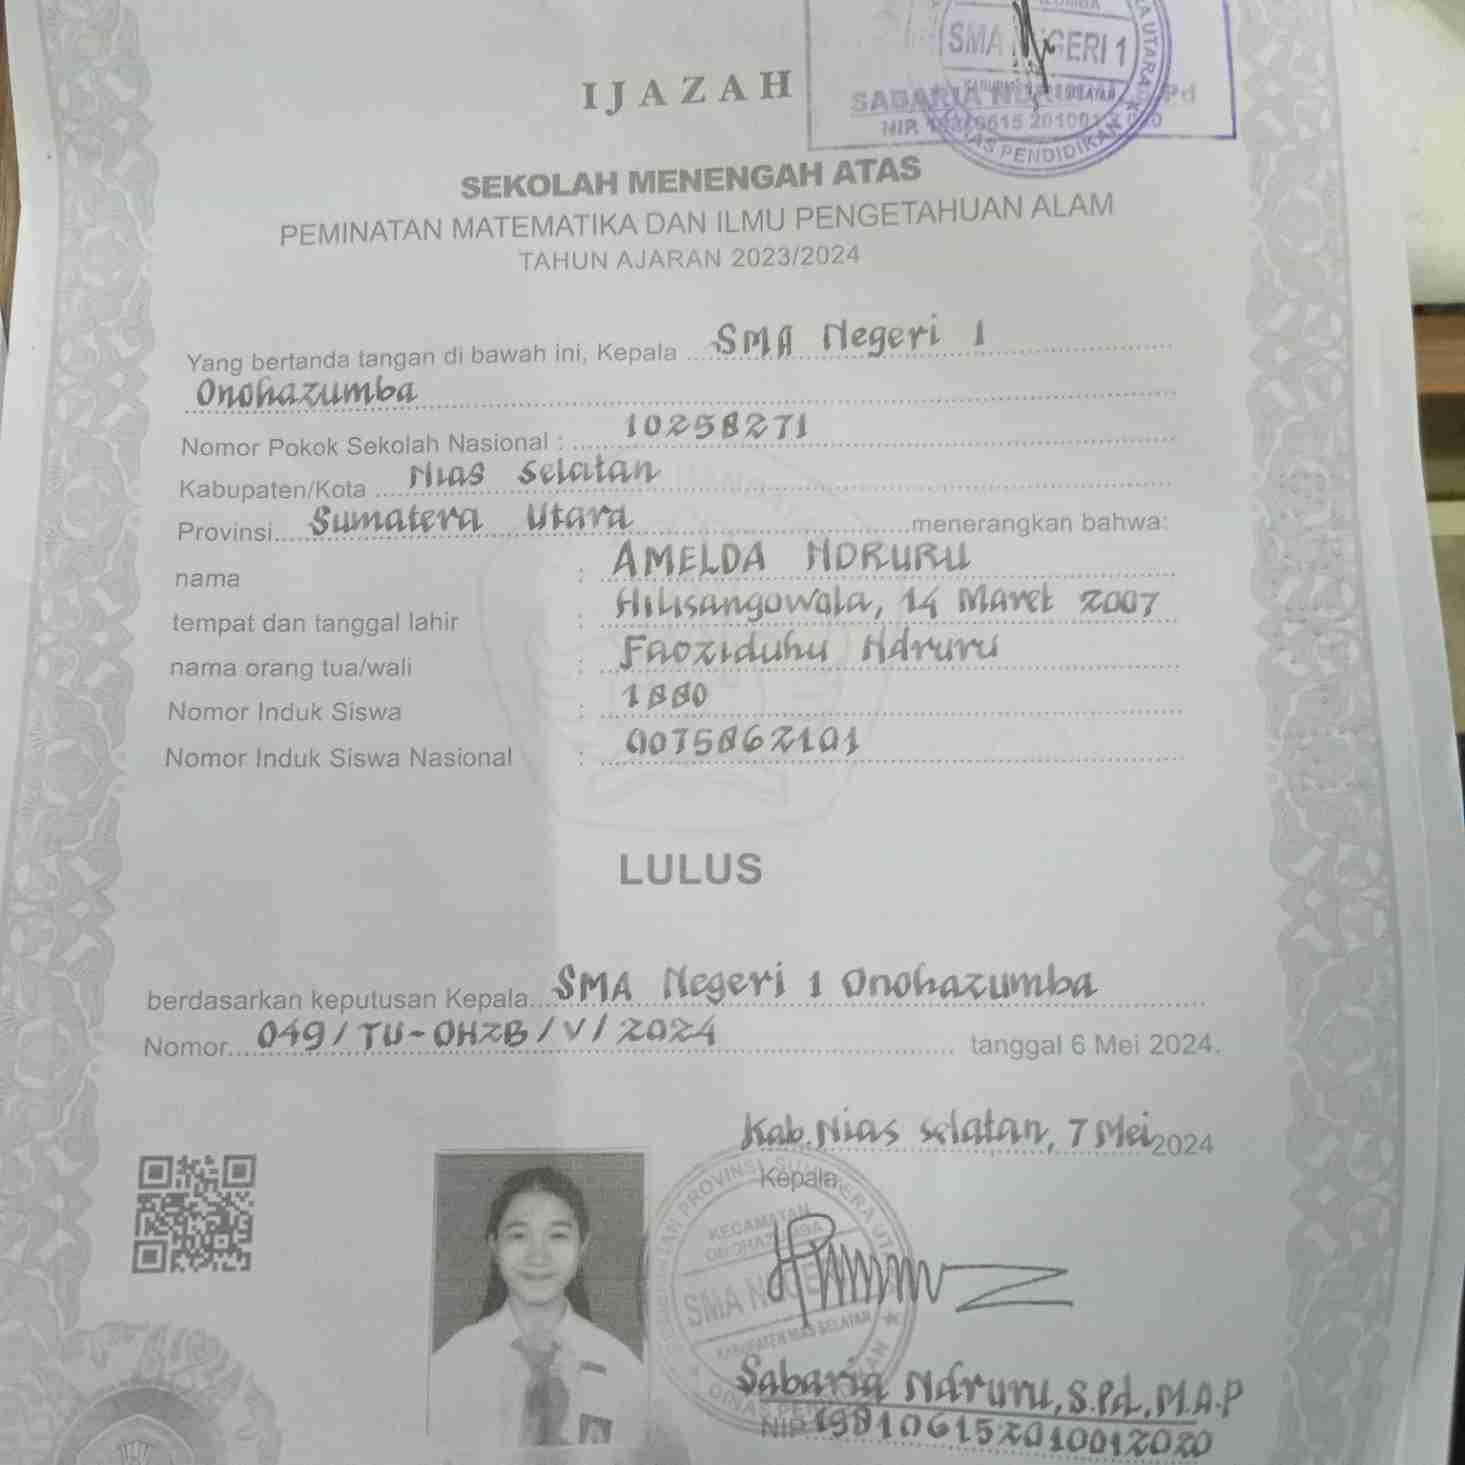 IJAZAH
SMA NEGERI 1
PENDIDIKAN
SEKOLAH MENENGAH ATAS
PEMINATAN MATEMATIKA DAN ILMU PENGETAHUAN ALAM
TAHUN AJARAN 2023/2024
Yang bertanda tangan di bawah ini, Kepala SMA Negeri 1
Onohazumba
Nomor Pokok Sekolah Nasional : 10258271
Kabupaten/Kota Nias Selatan
Provinsi Sumatera Utara menerangkan bahwa:
nama : AMELDA NDRURU
tempat dan tanggal lahir : Hilisangowola, 14 Maret 2007
nama orang tua/wali : Faoziduhu Ndruru
Nomor Induk Siswa : 1880
Nomor Induk Siswa Nasional : 0075862101
LULUS
berdasarkan keputusan Kepala SMA Negeri 1 Onohazumba
Nomor 049/TU-OHZB/V/2024 tanggal 6 Mei 2024.
Kab. Nias Selatan, 7 Mei 2024
Kepala
KECAMATAN
SMA
KABUPATEN NIAS SELATAN
Sabaria Ndruru, S.Pd, M.A.P
NIP 198106152010012020